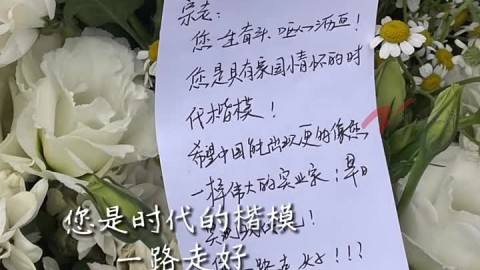 宗老:
您一生奋斗
您是具有家国情怀的时
代楷模!
希望中国能出现更多像您
一样伟大的实业家
一路走好!!?
您是时代的楷模
一路走好